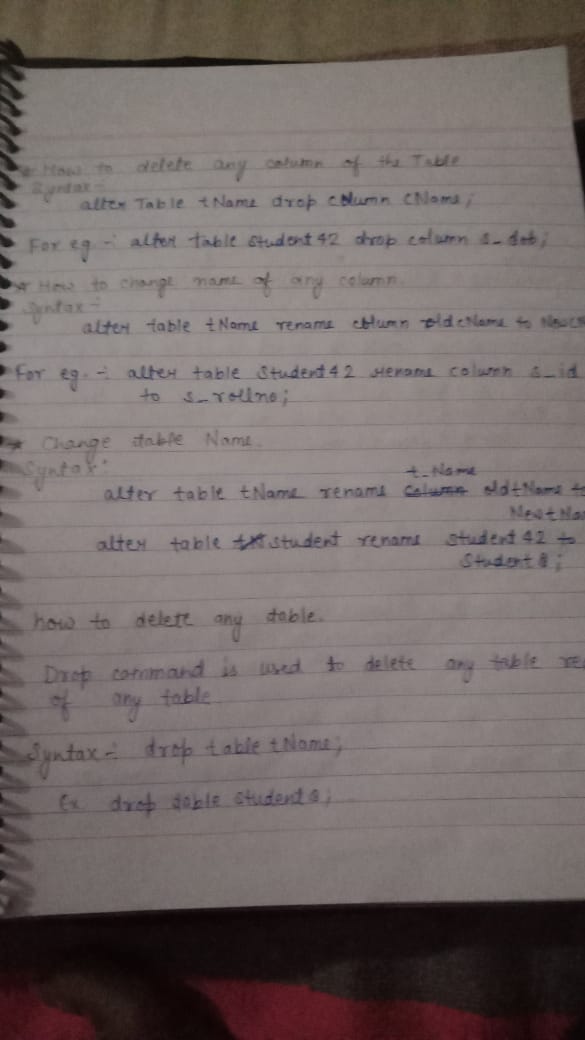 * How to delete any column of the Table
Syntax -
alter Table tName drop column CName;
For eg :- alter table student 42 drop column s_dob;
* How to change name of any column.
Syntax :-
alter table tName rename column oldcName to
For eg. :- alter table Student 42 rename column s_id
to s_rollno;
* Change table Name.
Syntax :
t_Name
alter table tName rename column oldtName to
alter table student rename student 42 to
Student 8;
how to delete any table.
Drop command is used to delete any table
of any table
Syntax :- drop table tName;
Ex drop table student 8;